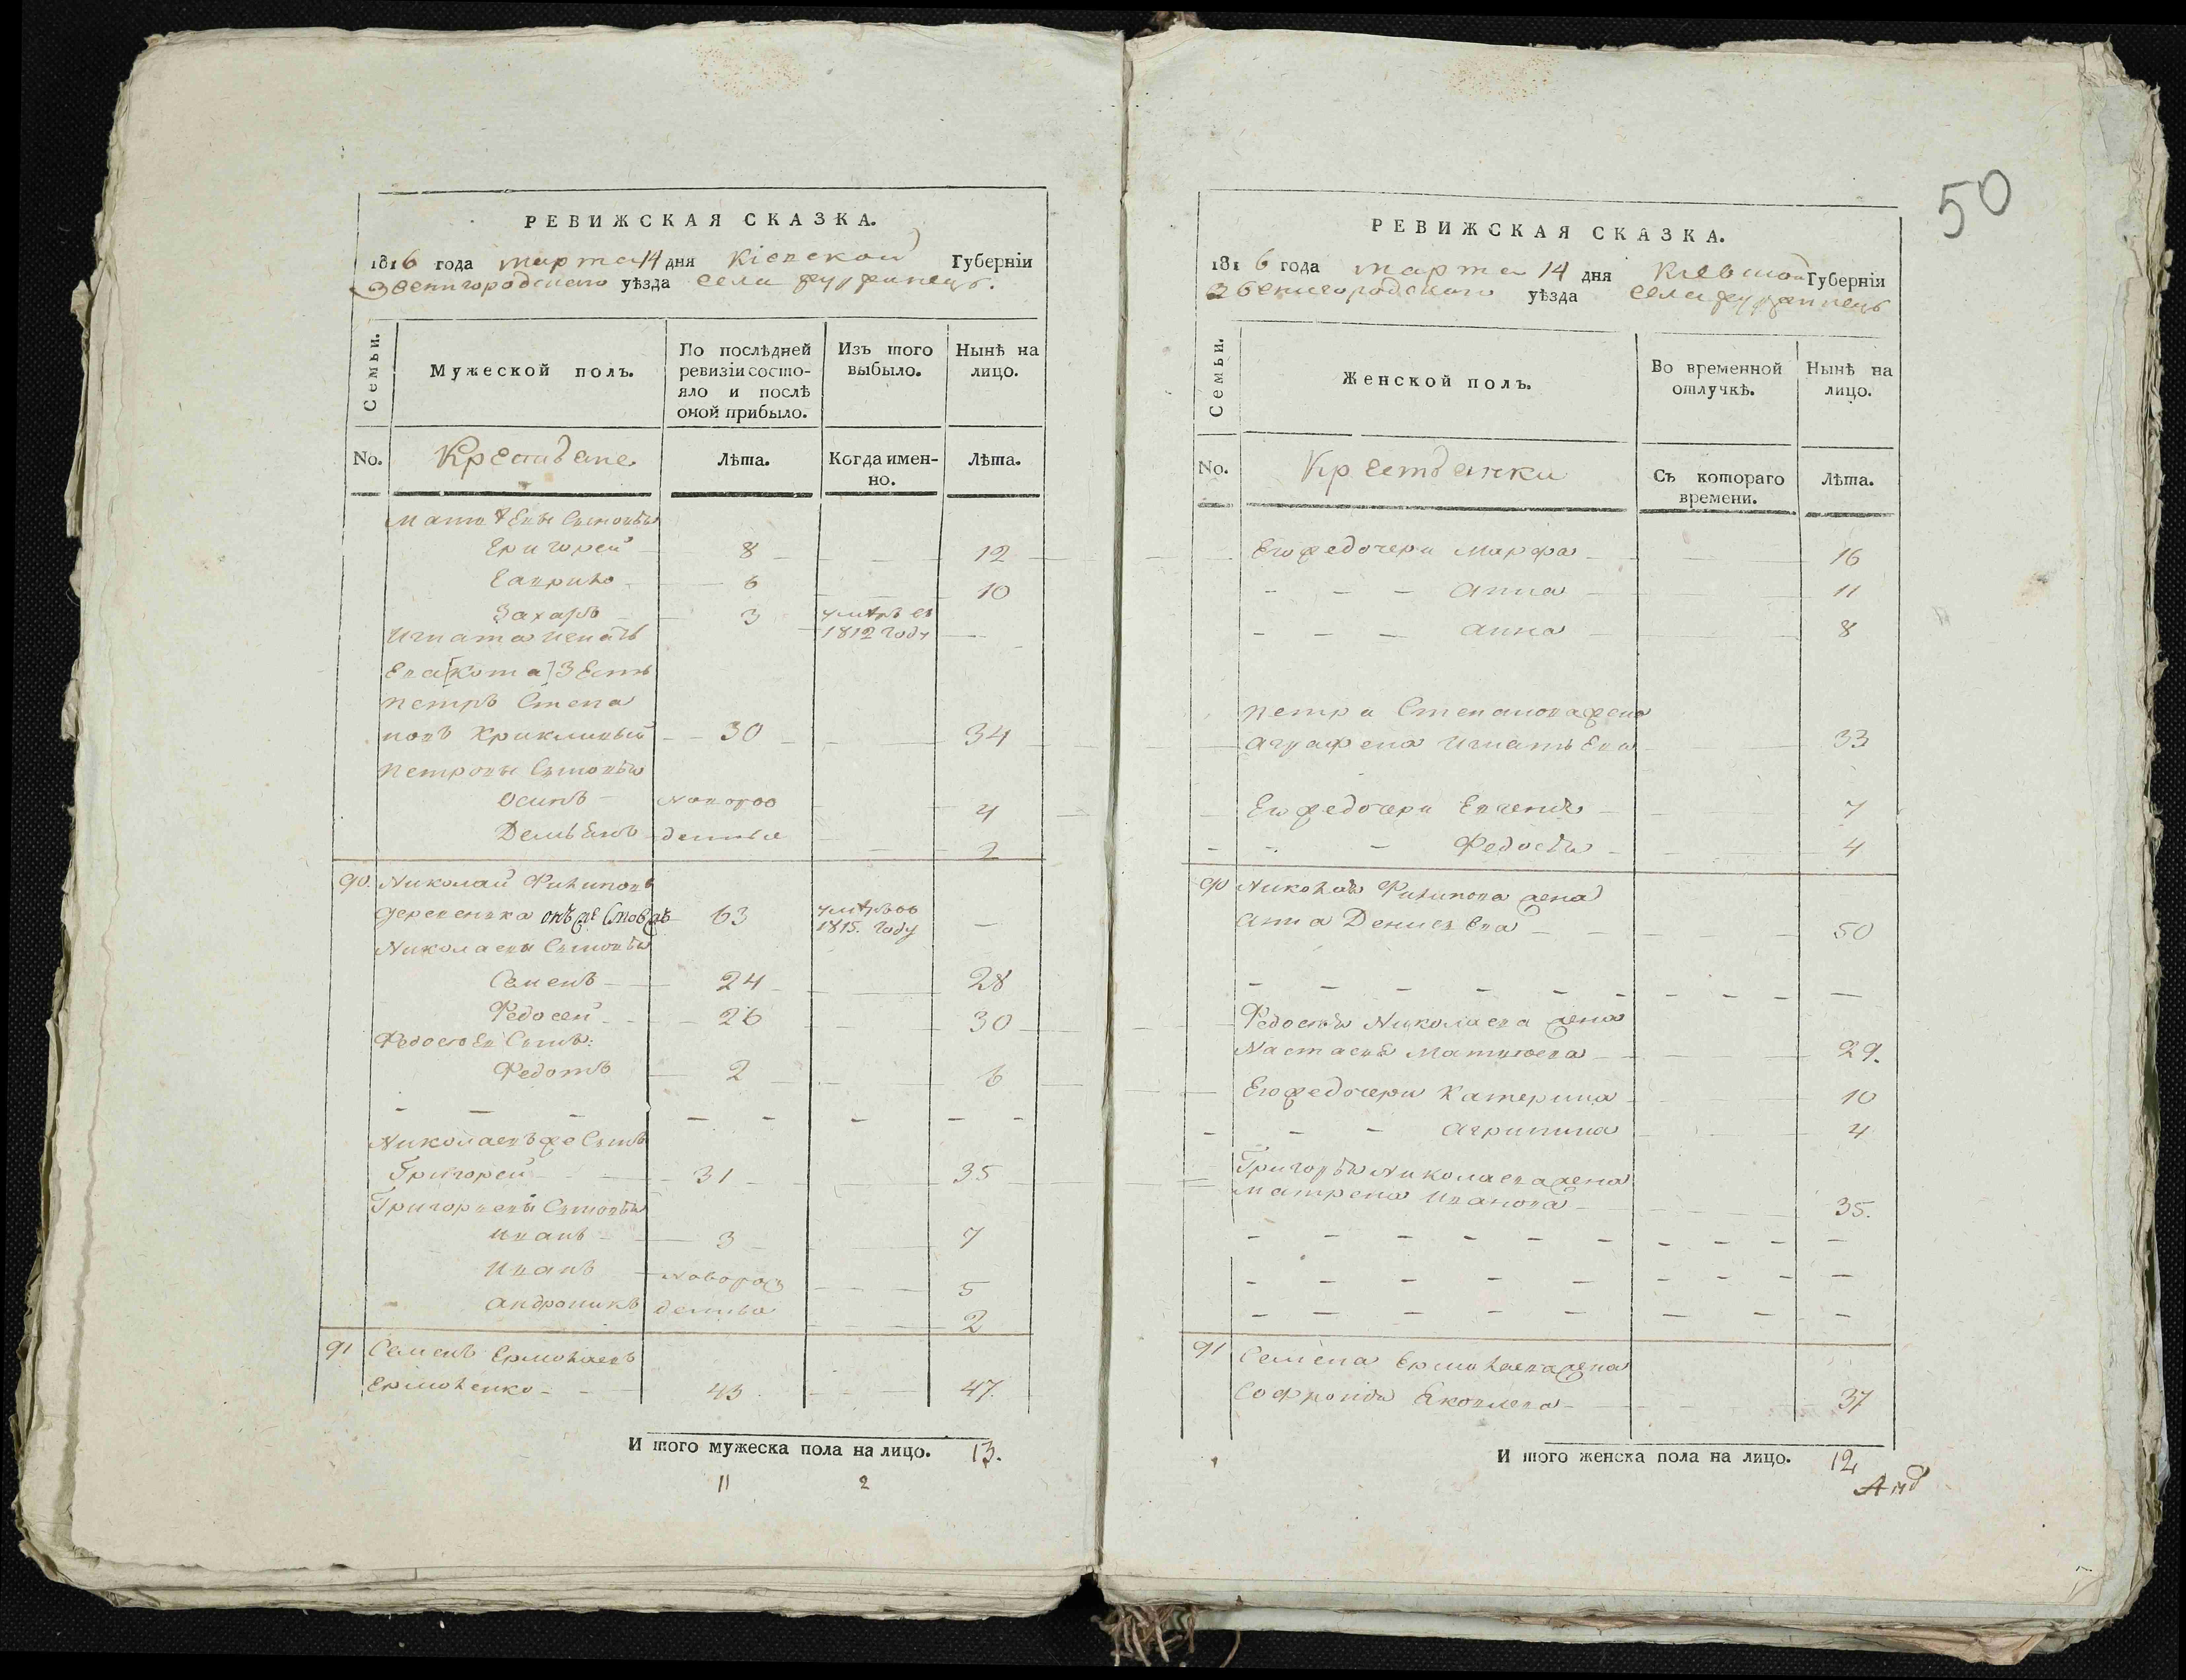 РЕВИЖСКАЯ СКАЗКА.
1816 года марта 14 дня Кіевской Губерніи
Звенигородскаго уѣзда села
Семьи.
Мужеской полъ.
По послѣдней ревизіи состояло и послѣ оной прибыло.
Изъ того выбыло.
Нынѣ на лицо.
No. Крестьяне Лѣта. Когда именно. Лѣта.
Матвѣевы Сыновья
Григорей 8 12
Гаврило 6 10
Захаръ 3 умеръ въ 1812 году
Игната Игнатьева [Кота] Зеть
Петръ Степановъ Крикливый 30 34
Петровы Сыновья
Осипъ новорож 4
Демьянъ денные 2
90. Николай Филиповъ
Деревенька онъ же 63 умеръ въ 1815. году
Николаевы Сыновья
Семенъ 24 28
Федосей 26 30
Федосеевъ Сынъ:
Федотъ 2 6
Николаевъ же Сынъ
Григорей 31 35
Григорьевы Сыновья
Иванъ 3 7
Иванъ новорож 5
Андроникъ денные 2
91 Семенъ Ермолаевъ
Ермоленко 43 47.
И того мужеска пола на лицо. 13.
11 2
50
РЕВИЖСКАЯ СКАЗКА.
1816 года марта 14 дня Кіевской Губерніи
Звенигородскаго уѣзда села
Семьи.
Женской полъ.
Во временной отлучкѣ.
Нынѣ на лицо.
No. Крестьянки Съ котораго времени. Лѣта.
Его же дочери Марфа 16
Анна 11
Анна 8
Петра Степанова жена
Аграфена Игнатьева 33
Его же дочери Евгенія 7
Федосья 4
90 Николая Филипова жена
Анна Денисьева 50
Федосья Николаева жена
Настасья Матвеева 29.
Его же дочери Катерина 10
Агрипина 4
Григорья Николаева жена
Матрена Иванова 35.
91 Семена Ермолаева жена
Софронія Яковлева 37
И того женска пола на лицо. 12